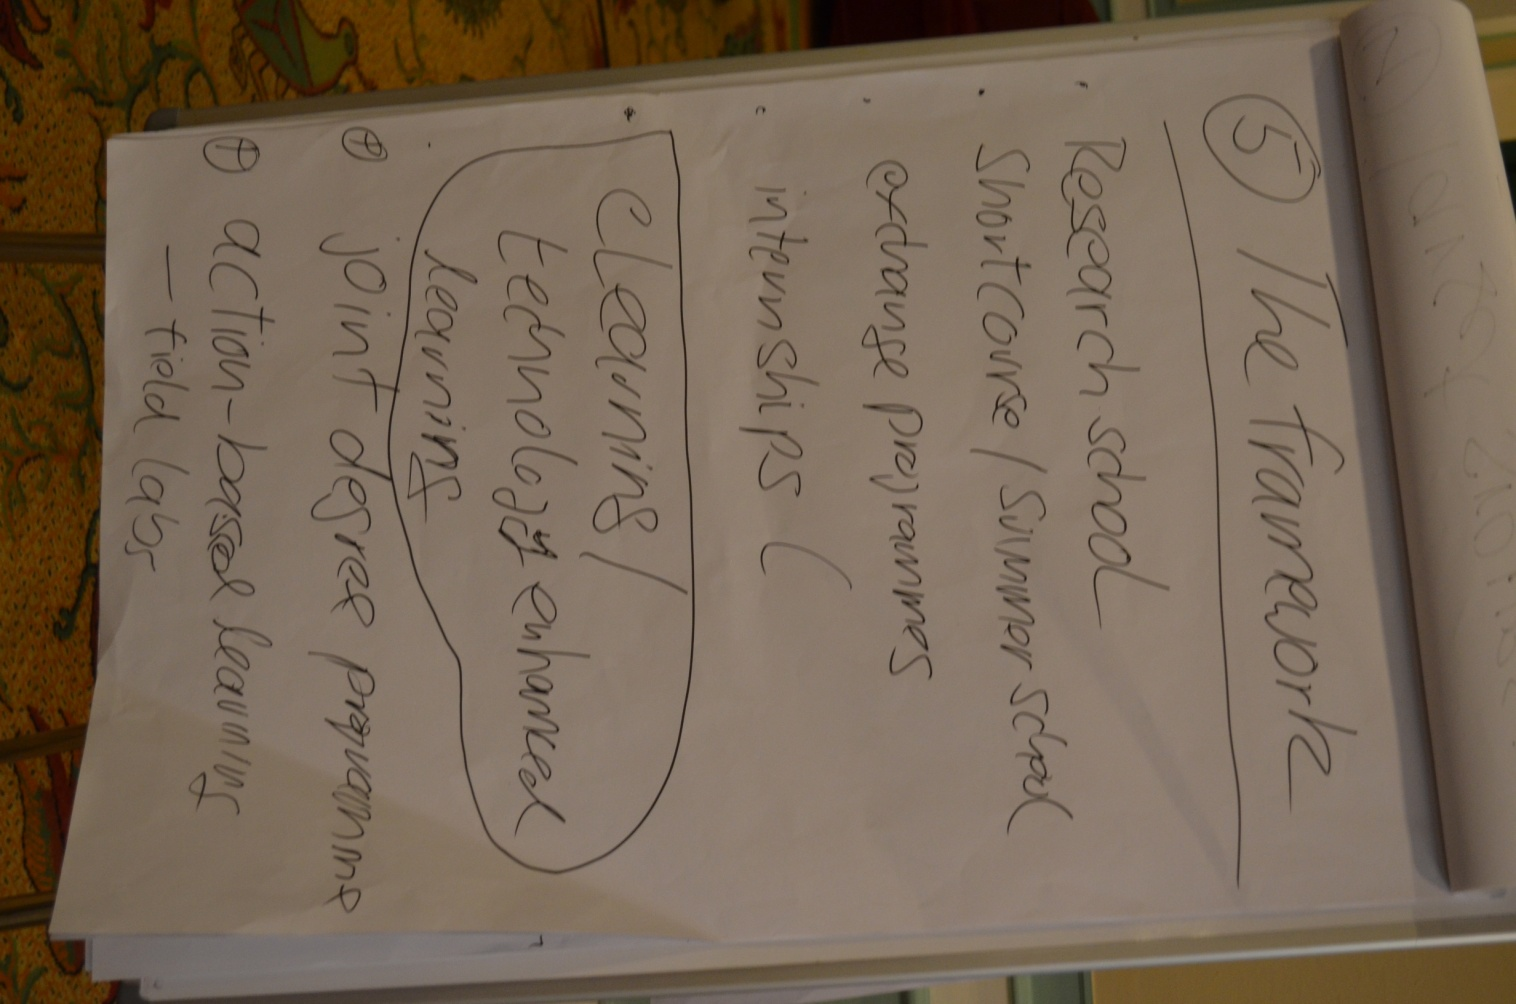 ⑤ The framework
• Research school
• Short course / summer school
• exchange programmes
• internships (
• elearning /
technology enhanced
learning
⊕ joint degree programme
⊕ action-based learning
– field labs